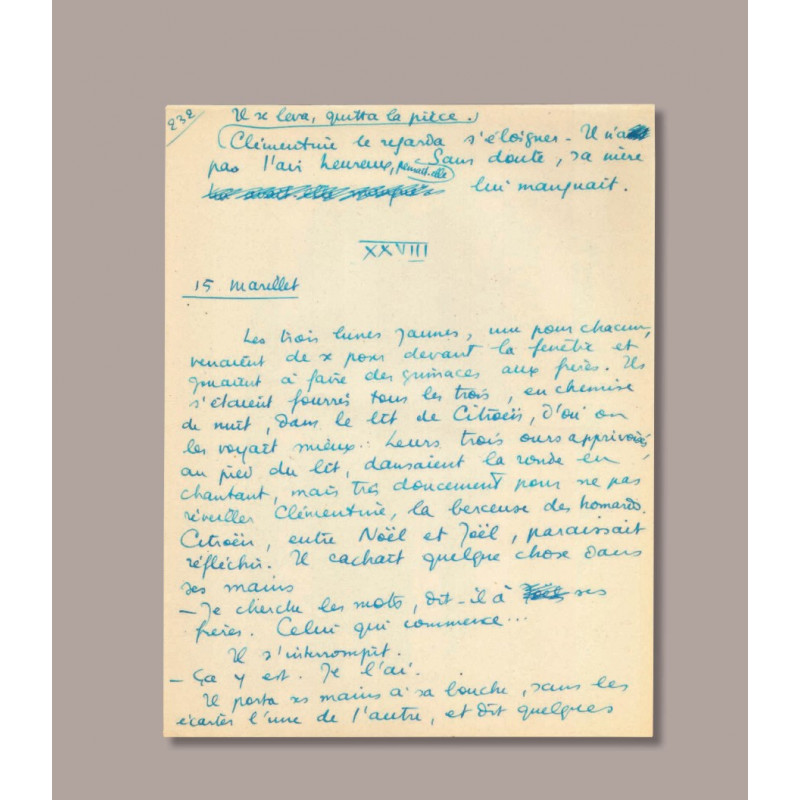 232
Il se leva, quitta la pièce.
Clémentine le regarda s'éloigner - Il n'a
pas l'air heureux, pensait-elle Sans doute, sa mère
lui manquait.
XXVIII
15 marillet
Les trois lunes jaunes, une pour chacun,
venaient de se poser devant la fenêtre et
jouaient à faire des grimaces aux frères. Ils
s'étaient fourrés tous les trois, en chemise
de nuit, dans le lit de Citroën, d'où on
les voyait mieux. Leurs trois ours apprivoisés,
au pied du lit, dansaient la ronde en
chantant, mais très doucement pour ne pas
réveiller Clémentine, la berceuse des homards.
Citroën, entre Noël et Joël, paraissait
réfléchir. Il cachait quelque chose dans
ses mains
- Je cherche les mots, dit-il à ses
frères. Celui qui commence...
Il s'interrompit.
- Ça y est. Je l'ai.
Il porta ses mains à sa bouche, sans les
écarter l'une de l'autre, et dit quelques